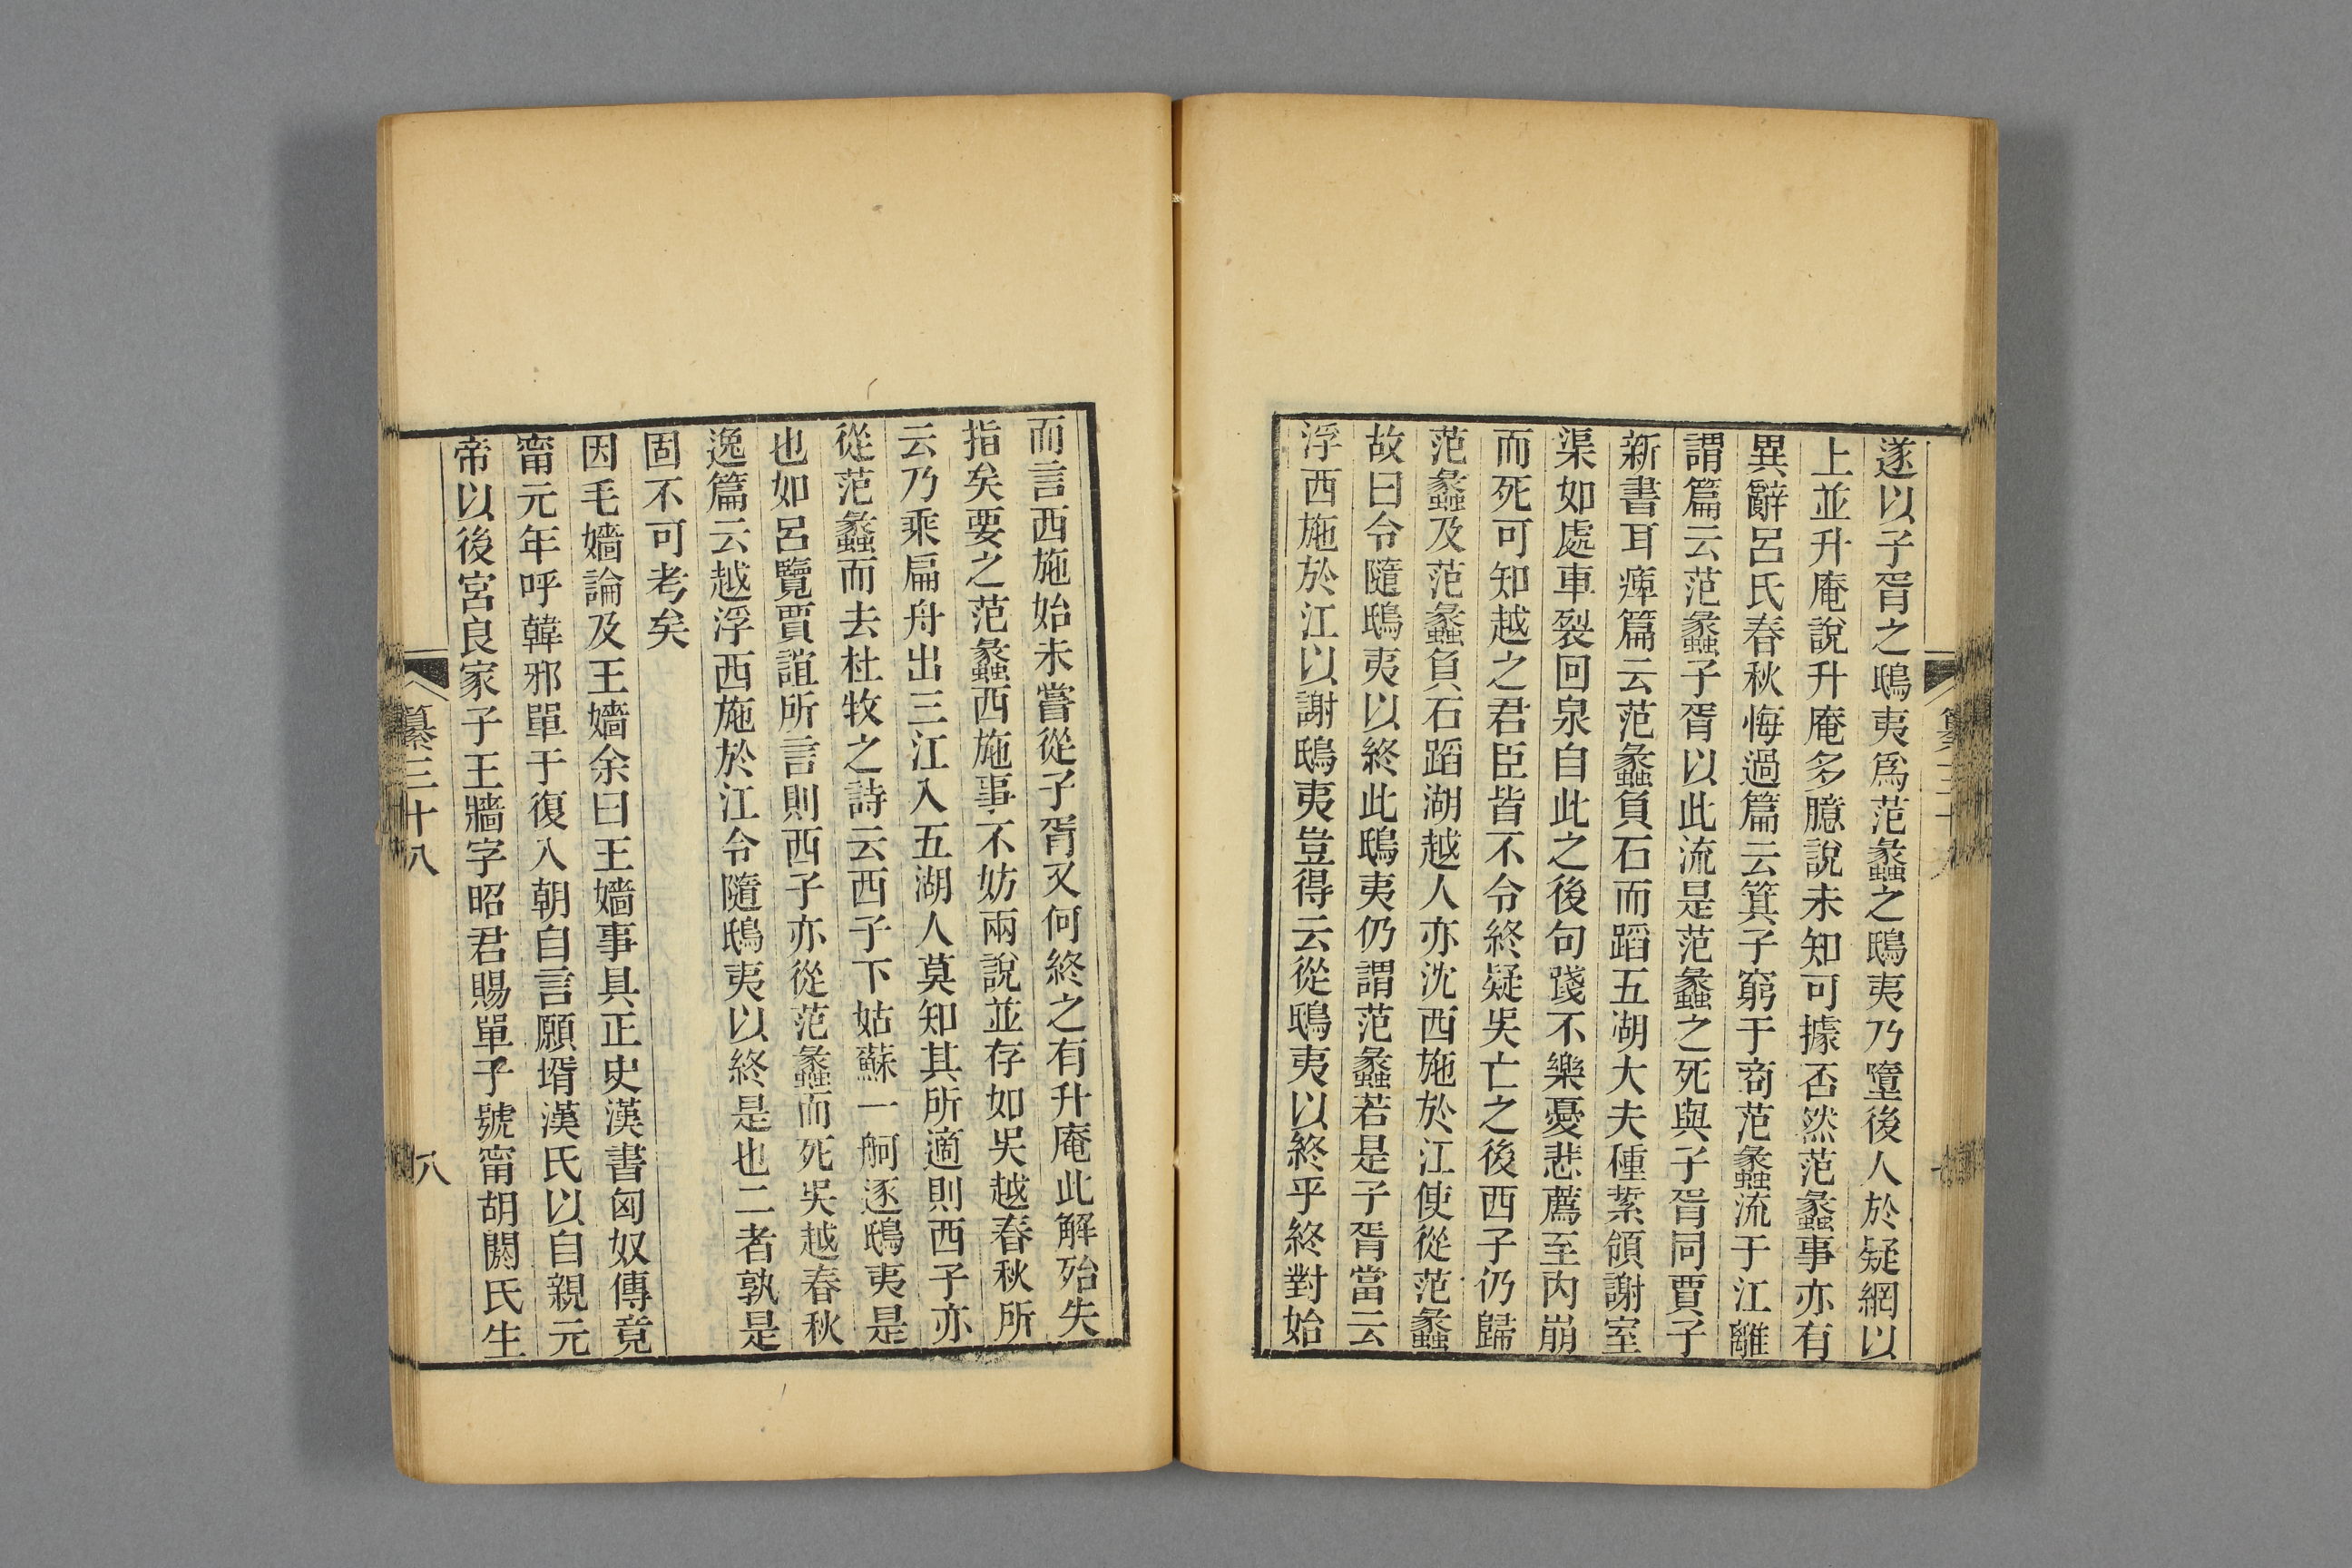 遂以子胥之鴟夷爲范蠡之鴟夷乃墮後人於疑網以
上並升庵說升庵多臆說未知可據否然范蠡事亦有
異辭呂氏春秋悔過篇云箕子窮于商范蠡流于江離
謂篇云范蠡子胥以此流是范蠡之死與子胥同賈子
新書耳痺篇云范蠡負石而蹈五湖大夫種絜領謝室
渠如處車裂回泉自此之後句踐不樂憂悲薦至內崩
而死可知越之君臣皆不令終疑吳亡之後西子仍歸
范蠡及范蠡負石蹈湖越人亦沈西施於江使從范蠡
故曰令隨鴟夷以終此鴟夷仍謂范蠡若是子胥當云
浮西施於江以謝鴟夷豈得云從鴟夷以終乎終對始
而言西施始未嘗從子胥又何終之有升庵此解殆失
指矣要之范蠡西施事不妨兩說並存如吳越春秋所
云乃乘扁舟出三江入五湖人莫知其所適則西子亦
從范蠡而去杜牧之詩云西子下姑蘇一舸逐鴟夷是
也如呂覽賈誼所言則西子亦從范蠡而死吳越春秋
逸篇云越浮西施於江令隨鴟夷以終是也二者孰是
固不可考矣
因毛嬙論及王嬙余曰王嬙事具正史漢書匈奴傳竟
甯元年呼韓邪單于復入朝自言願壻漢氏以自親元
帝以後宮良家子王牆字昭君賜單子號甯胡閼氏生
纂三十八
八